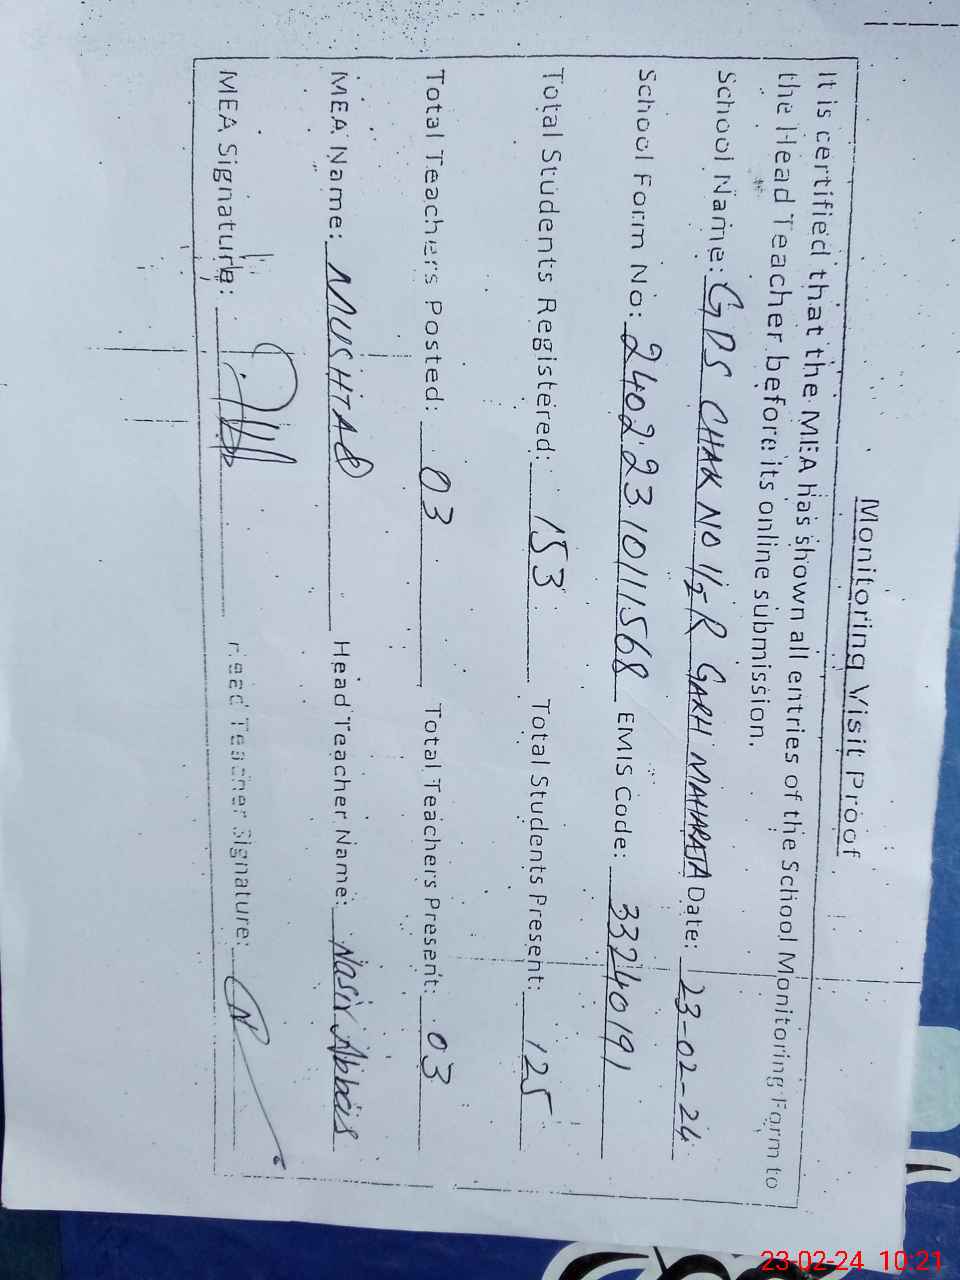 Monitoring Visit Proof
It is certified that the MEA has shown all entries of the School Monitoring Form to
the Head Teacher before its online submission.
School Name: GPS CHAK NO 1/2-R GARH MAHARAJA Date: 23-02-24
School Form No: 24022310111568 EMIS Code: 33240191
Total Students Registered: 153 Total Students Present: 125
Total Teachers Posted: 03 Total Teachers Present: 03
MEA Name: MUSHTAQ Head Teacher Name: Nasir Abbas
MEA Signature: Head Teacher Signature:
23-02-24 10:21